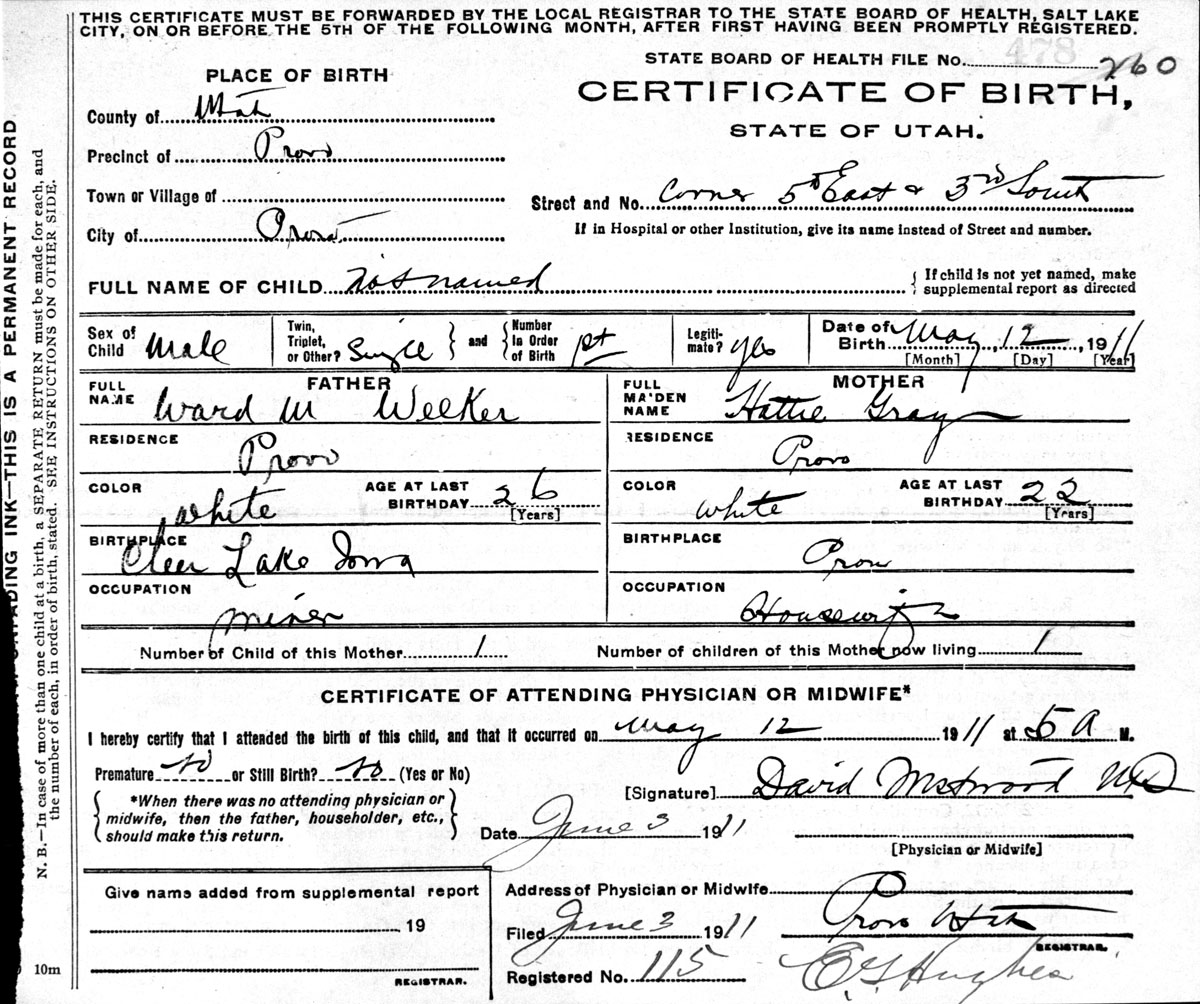 THIS CERTIFICATE MUST BE FORWARDED BY THE LOCAL REGISTRAR TO THE STATE BOARD OF HEALTH, SALT LAKE
CITY, ON OR BEFORE THE 5TH OF THE FOLLOWING MONTH, AFTER FIRST HAVING BEEN PROMPTLY REGISTERED.
478
STATE BOARD OF HEALTH FILE No. 260
PLACE OF BIRTH
CERTIFICATE OF BIRTH,
STATE OF UTAH.
County of Utah
Precinct of Provo
Town or Village of
Street and No. Corner 5th East & 3rd South
City of Provo
If in Hospital or other Institution, give its name instead of Street and number.
FULL NAME OF CHILD not named
If child is not yet named, make
supplemental report as directed
Sex of Child Male
Twin, Triplet, or Other? Single and Number In Order of Birth 1st
Legiti-mate? yes
Date of Birth May, 12, 1911
[Month] [Day] [Year]
FATHER
FULL NAME Ward M Welker
MOTHER
FULL MAIDEN NAME Hattie Gray
RESIDENCE Provo
RESIDENCE Provo
COLOR white AGE AT LAST BIRTHDAY 26 [Years]
COLOR white AGE AT LAST BIRTHDAY 22 [Years]
BIRTHPLACE Clear Lake Iowa
BIRTHPLACE Provo
OCCUPATION miner
OCCUPATION Housewife
Number of Child of this Mother 1
Number of children of this Mother now living 1
CERTIFICATE OF ATTENDING PHYSICIAN OR MIDWIFE*
I hereby certify that I attended the birth of this child, and that it occurred on May 12 1911 at 5 A M.
Premature No or Still Birth? No (Yes or No)
[Signature] David Westwood MD
*When there was no attending physician or
midwife, then the father, householder, etc.,
should make this return.
Date June 3 1911
[Physician or Midwife]
Give name added from supplemental report
19
REGISTRAR.
Address of Physician or Midwife
Provo Utah
Filed June 3 1911
REGISTRAR.
Registered No. 115
E G Hughes
10m
ADING INK—THIS IS A PERMANENT RECORD
N. B.—In case of more than one child at a birth, a SEPARATE RETURN must be made for each, and
the number of each, in order of birth, stated. SEE INSTRUCTIONS ON OTHER SIDE.